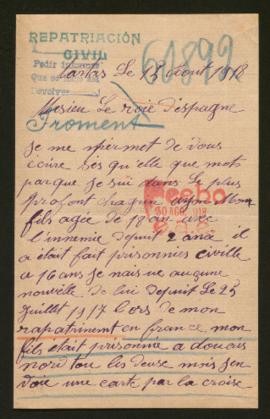 REPATRIACIÓN
CIVIL
Pedir informe
Que se
Devolver
61899
Le 18 aout 1918
Mesieu Le roie d'espagne
Froment
je me permet de vous
écire ses qu'elle que mots
parque je sui dans Le plus
profont chagrin ayan mon
fils agée de 18 an avec
l'innemie depuit 2 ans il
a était fait prisonnies civille
a 16 ans je nais ue aucune
nouvelle de lui depuit Le 25
juillet 1917 Lors de mon
rapatriment en france mon
fils était prisonnié a douais
nord tou les deuse mois jen
voie une carte par la croise
Rcbo
30 AGO. 1918